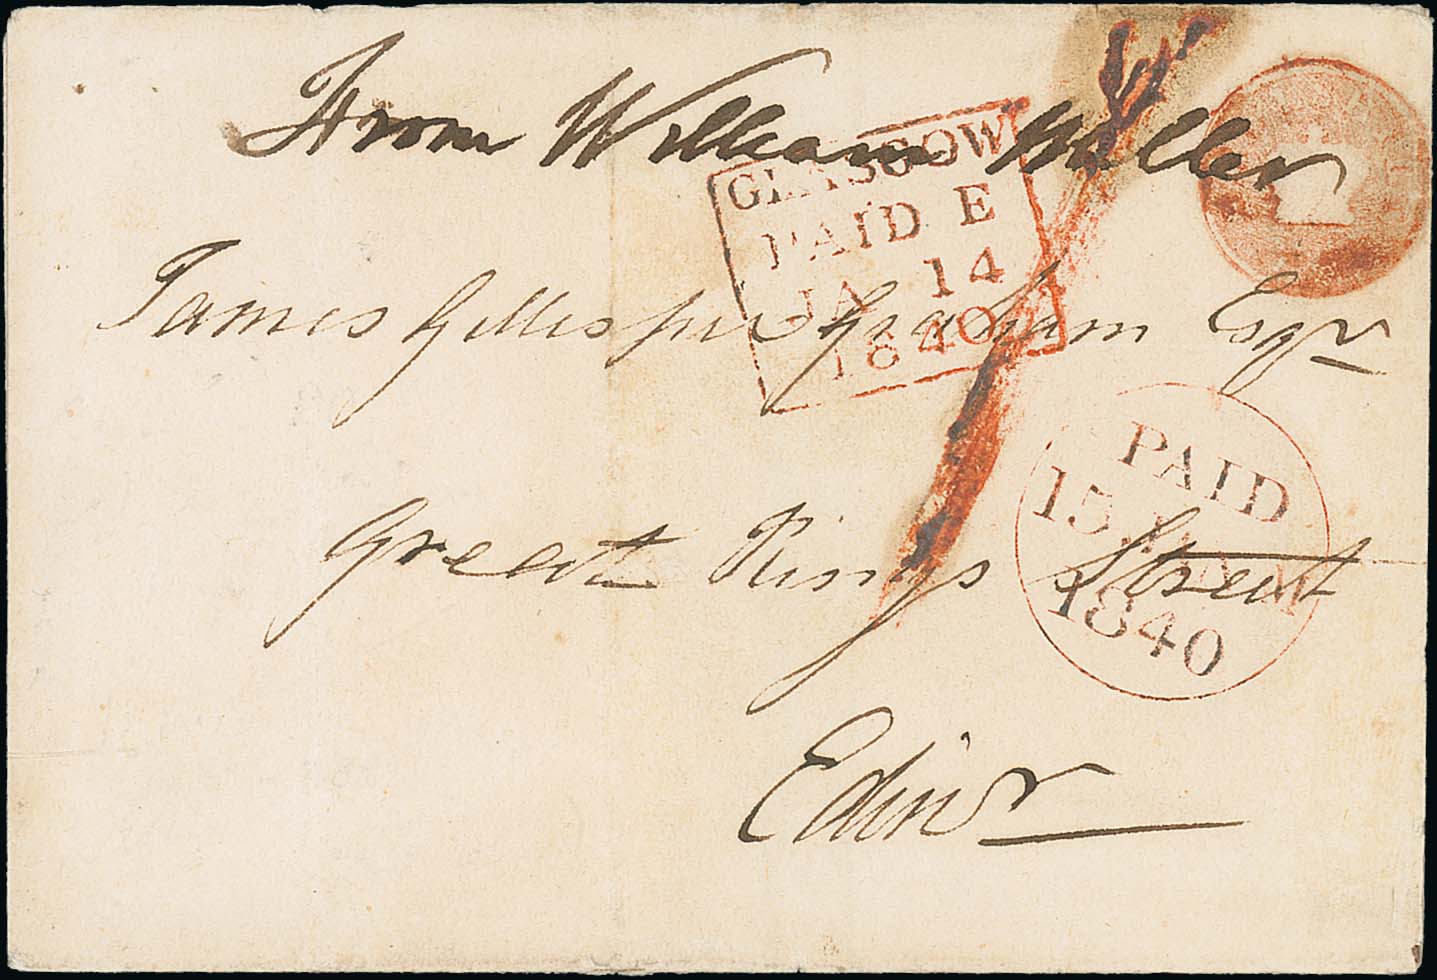 From William Miller
GLASGOW
PAID E
JA 14
1840
James Gillespie Graham Esqr
PAID
15 JA
1840
Great Kings Street
Edinr